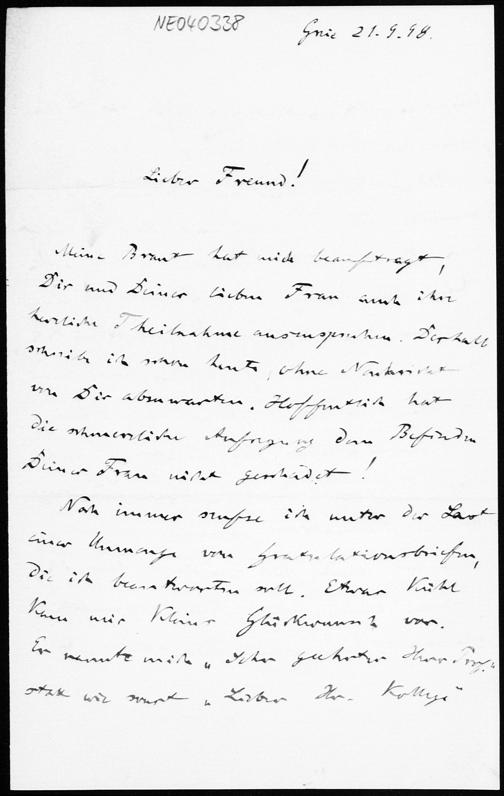 NE040338
21.9.98.
Lieber Freund!
Meine Braut hat mich beauftragt,
Dir und Deiner lieben Frau auch ihre
herzliche Theilnahme auszusprechen. Deshalb
schreibe ich schon heute, ohne Nachricht
von Dir abzuwarten. Hoffentlich hat
die schmerzliche Aufregung dem Befinden
Deiner Frau nicht geschadet!
Noch immer seufze ich unter der Last
einer Unmenge von Gratulationsbriefen,
die ich beantworten soll. Etwas kühl
kam mir Kleins Glückwunsch vor.
Er nannte mich „Sehr geehrter Herr Prof."
statt wie sonst „Lieber Hr. Kollege"